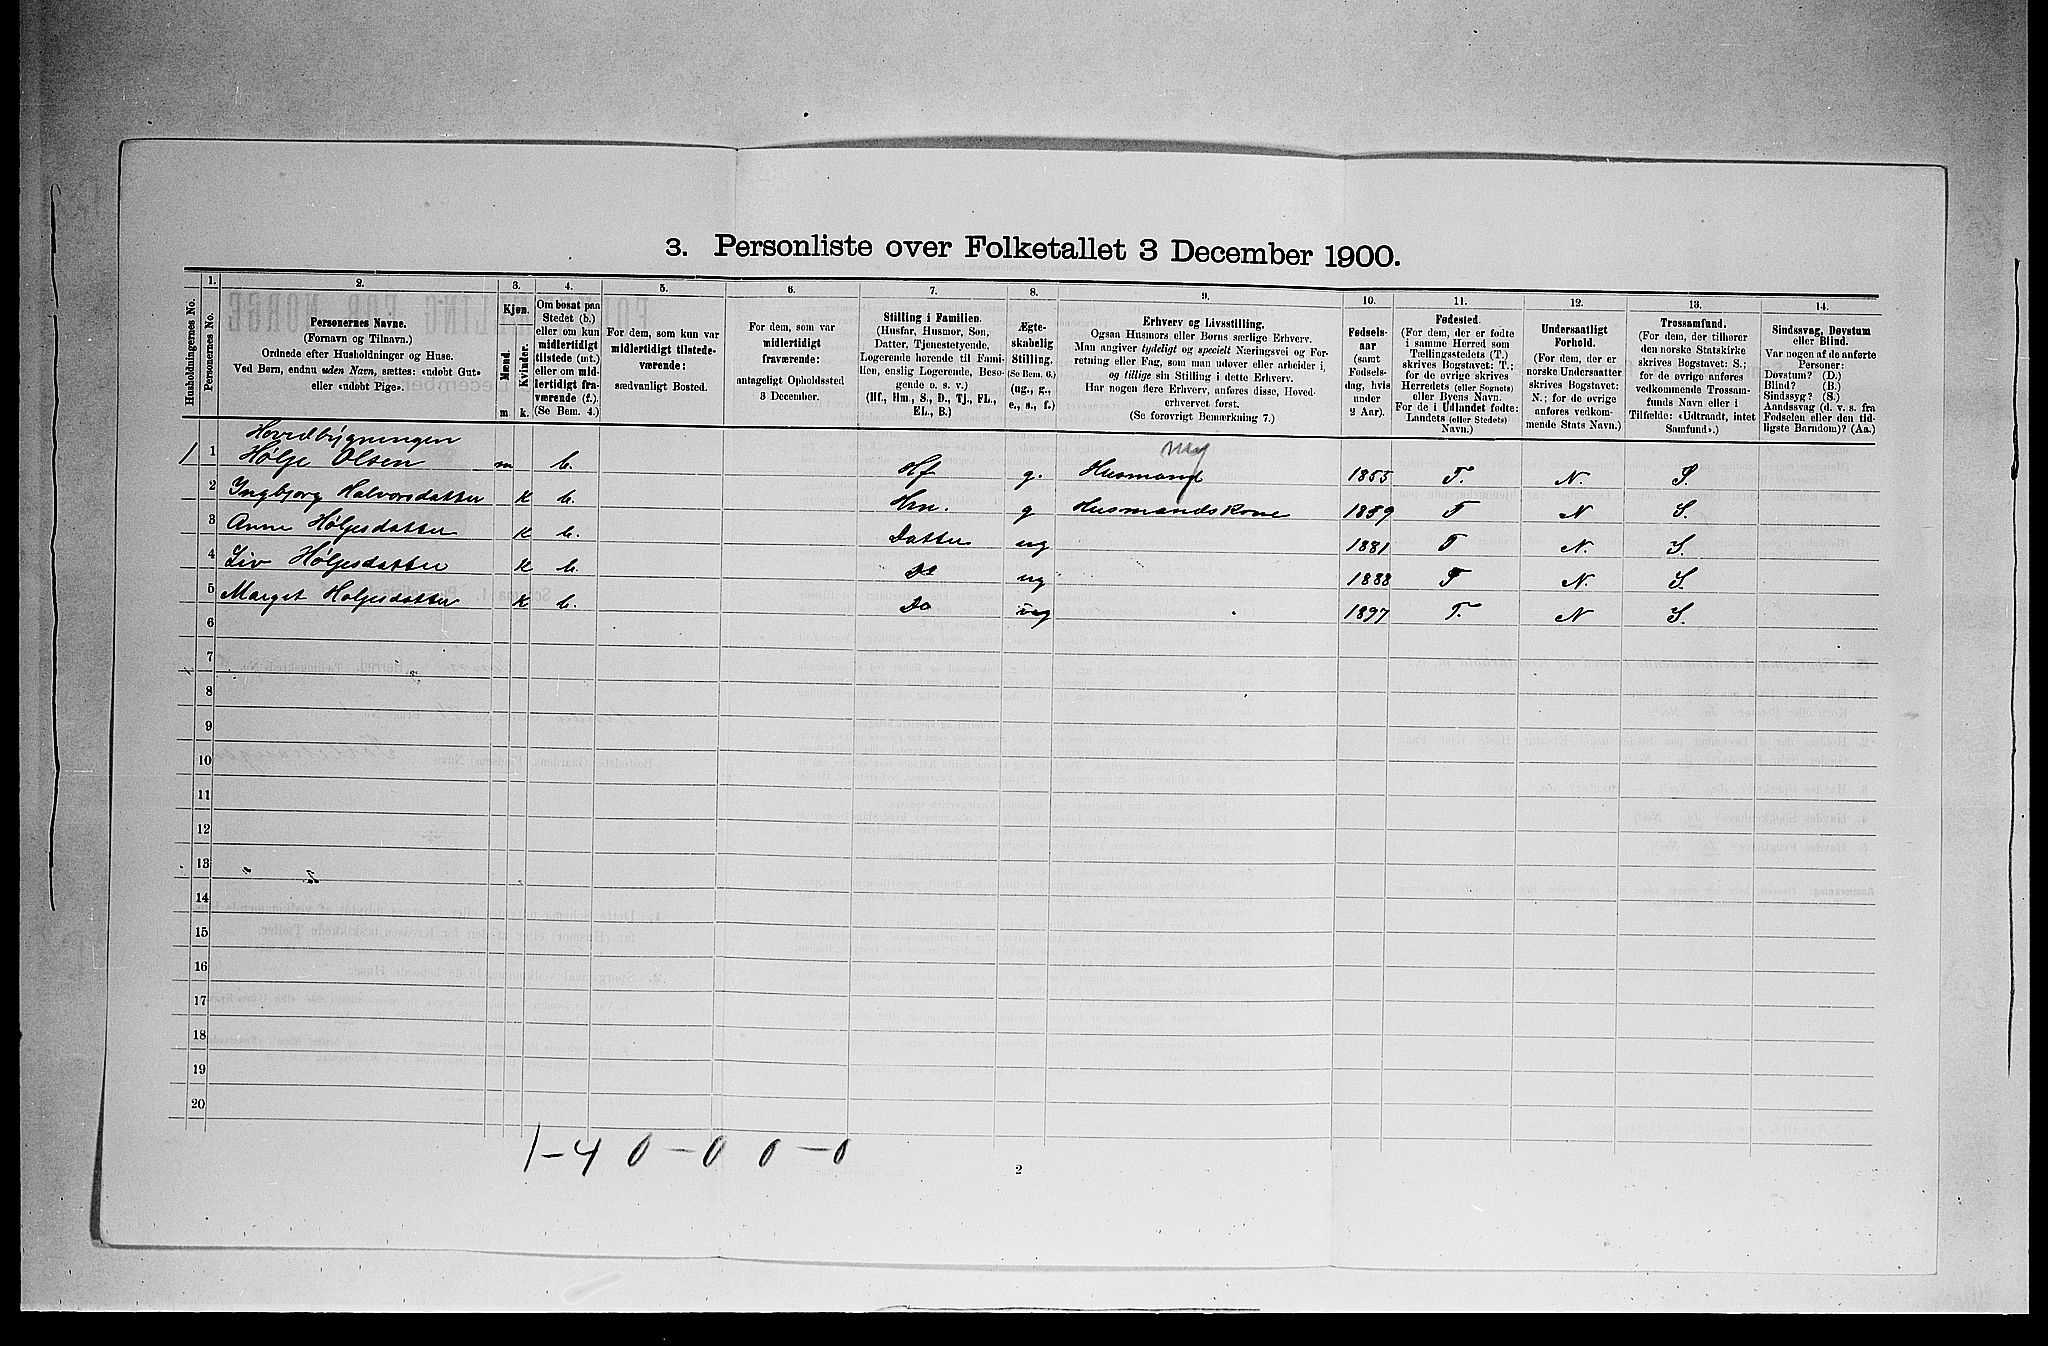 3. Personliste over Folketallet 3 December 1900.
Husholdningernes No.
1.
Personernes No.
2.
Personernes Navne.
(Fornavn og Tilnavn.)
Ordnede efter Husholdninger og Huse.
Ved Børn, endnu uden Navn, sættes: «udøbt Gut»
eller «udøbt Pige».
3.
Kjøn.
Mænd.
Kvinder.
m k.
4.
Om bosat paa
Stedet (b.)
eller om kun
midlertidigt
tilstede (mt.)
eller om mid-
lertidigt fra-
værende (f.).
(Se Bem. 4.)
5.
For dem, som kun var
midlertidigt tilstede-
værende:
sædvanligt Bosted.
6.
For dem, som var
midlertidigt
fraværende:
antageligt Opholdssted
3 December.
7.
Stilling i Familien.
(Husfar, Husmor, Søn,
Datter, Tjenestetyende,
Logerende hørende til Fami-
lien, enslig Logerende, Besø-
gende o. s. v.)
(Hf., Hm., S., D., Tj., FL.,
EL., B.)
8.
Ægte-
skabelig
Stilling.
(Se Bem. 6.)
(ug., g.,
e., s., f.)
9.
Erhverv og Livsstilling.
Ogsaa Husmors eller Børns særlige Erhverv.
Man angiver tydeligt og specielt Næringsvei og For-
retning eller Fag, som man udøver eller arbeider i,
og tillige sin Stilling i dette Erhverv.
Har nogen flere Erhverv, anføres disse, Hoved-
erhvervet først.
(Se forøvrigt Bemærkning 7.)
10.
Fødsels-
aar
(samt
Fødsels-
dag, hvis
under
2 Aar).
11.
Fødested.
(For dem, der er fødte
i samme Herred som
Tællingsstedets (T.)
skrives Bogstavet: T.;
for de øvrige skrives
Herredets (eller Sognets)
eller Byens Navn.
For de i Udlandet fødte:
Landets (eller Stedets)
Navn.)
12.
Undersaatligt
Forhold.
(For dem, der er
norske Undersaatter
skrives Bogstavet:
N.; for de øvrige
anføres vedkom-
mende Stats Navn.)
13.
Trossamfund.
(For dem, der tilhører
den norske Statskirke
skrives Bogstavet: S.;
for de øvrige anføres
vedkommende Trossam-
funds Navn eller i
Tilfælde: «Udtraadt, intet
Samfund».)
14.
Sindssvag, Døvstum
eller Blind.
Var nogen af de anførte
Personer:
Døvstum? (D.)
Blind? (B.)
Sindssyg? (S.)
Aandssvag (d. v. s. fra
Fødselen eller den tid-
ligste Barndom)? (Aa.)
Hovedbygningen
1 1 Hølje Olsen m b. Hf g. Husmand 1855 T. N. S.
2 Ingbjorg Halvorsdatter k b. Hm. g Husmandskone 1859 T N S.
3 Anne Høljesdatter k b. Datter ug 1881 T N. S.
4 Liv Høljesdatter k b. Do ug 1888 T N. S.
5 Marget Holjesdatter k b. Do ug 1897 T. N S.
6
7
8
9
10
11
12
13
14
15
16
17
18
19
20
1-4 0-0 0-0
2